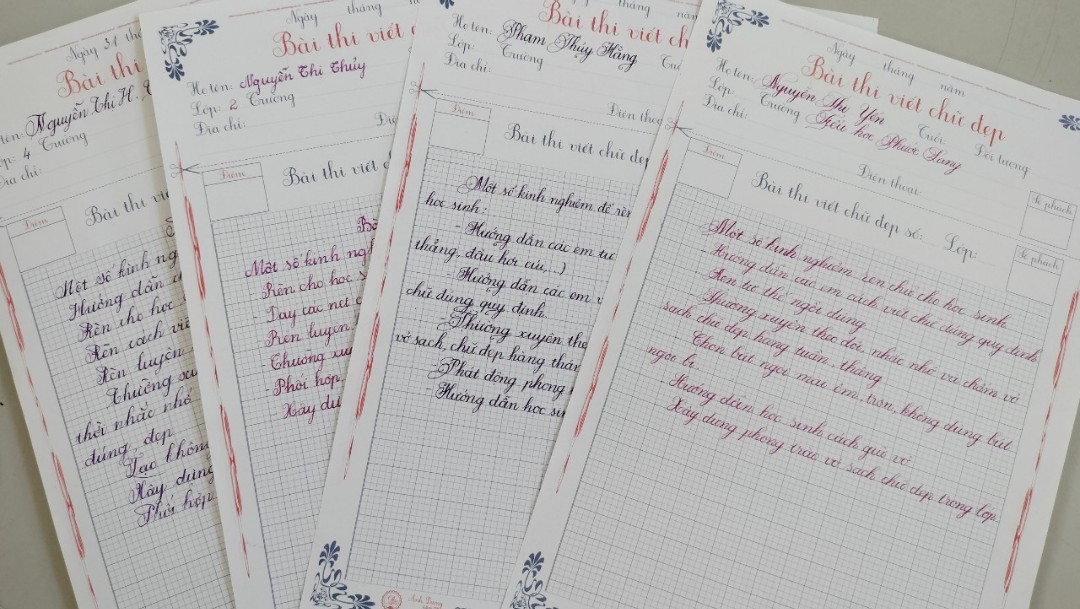 Ngày 31
Bài thi
Họ tên: Nguyễn Thị H.
Lớp: 4 Trường
Địa chỉ:
Điểm
Bài thi viết
Một số kinh
Hướng dẫn
Rèn cho học
Rèn cách viết
Rèn luyện
Thường
thời nhắc nhở
đúng, đẹp
Tạo không
Xây dựng
Phối hợp
Ngày tháng
Bài thi viết
Họ tên: Nguyễn Thị Thủy
Lớp: 2 Trường
Địa chỉ:
Điểm
Bài thi viết
Một số kinh
- Rèn cho học
- Dạy các nét
- Rèn luyện
- Thường
- Phối hợp
- Xây
tháng năm
Bài thi viết
Họ tên: Phạm Thúy Hằng
Lớp: Trường
Địa chỉ:
Điện thoại
Điểm
Bài thi viết chữ đẹp
Một số kinh nghiệm để rèn
học sinh:
- Hướng dẫn các em tư
thẳng, đầu hơi cúi,...)
- Hướng dẫn các em
chữ đúng quy định.
- Thường xuyên
vở sạch, chữ đẹp hàng
- Phát động phong
- Hướng dẫn học
Ngày tháng năm
Bài thi viết chữ đẹp
Họ tên: Nguyễn Thị Yên Tuổi: Đối tượng
Lớp: Trường Tiểu học Phước
Địa chỉ: Điện thoại:
Điểm
Số phách
Bài thi viết chữ đẹp số: Lớp:
Số phách
Một số kinh nghiệm rèn chữ cho học sinh
- Hướng dẫn các em cách viết chữ đúng quy định.
- Rèn tư thế ngồi đúng.
- Thường xuyên theo dõi, nhắc nhở và chấm vở
sạch chữ đẹp hàng tuần, tháng
- Chọn bút ngòi mài êm, trơn, không dùng bút
ngòi bi.
- Hướng dẫn học sinh cách giữ vở
Xây dựng phong trào vở sạch chữ đẹp trong lớp.